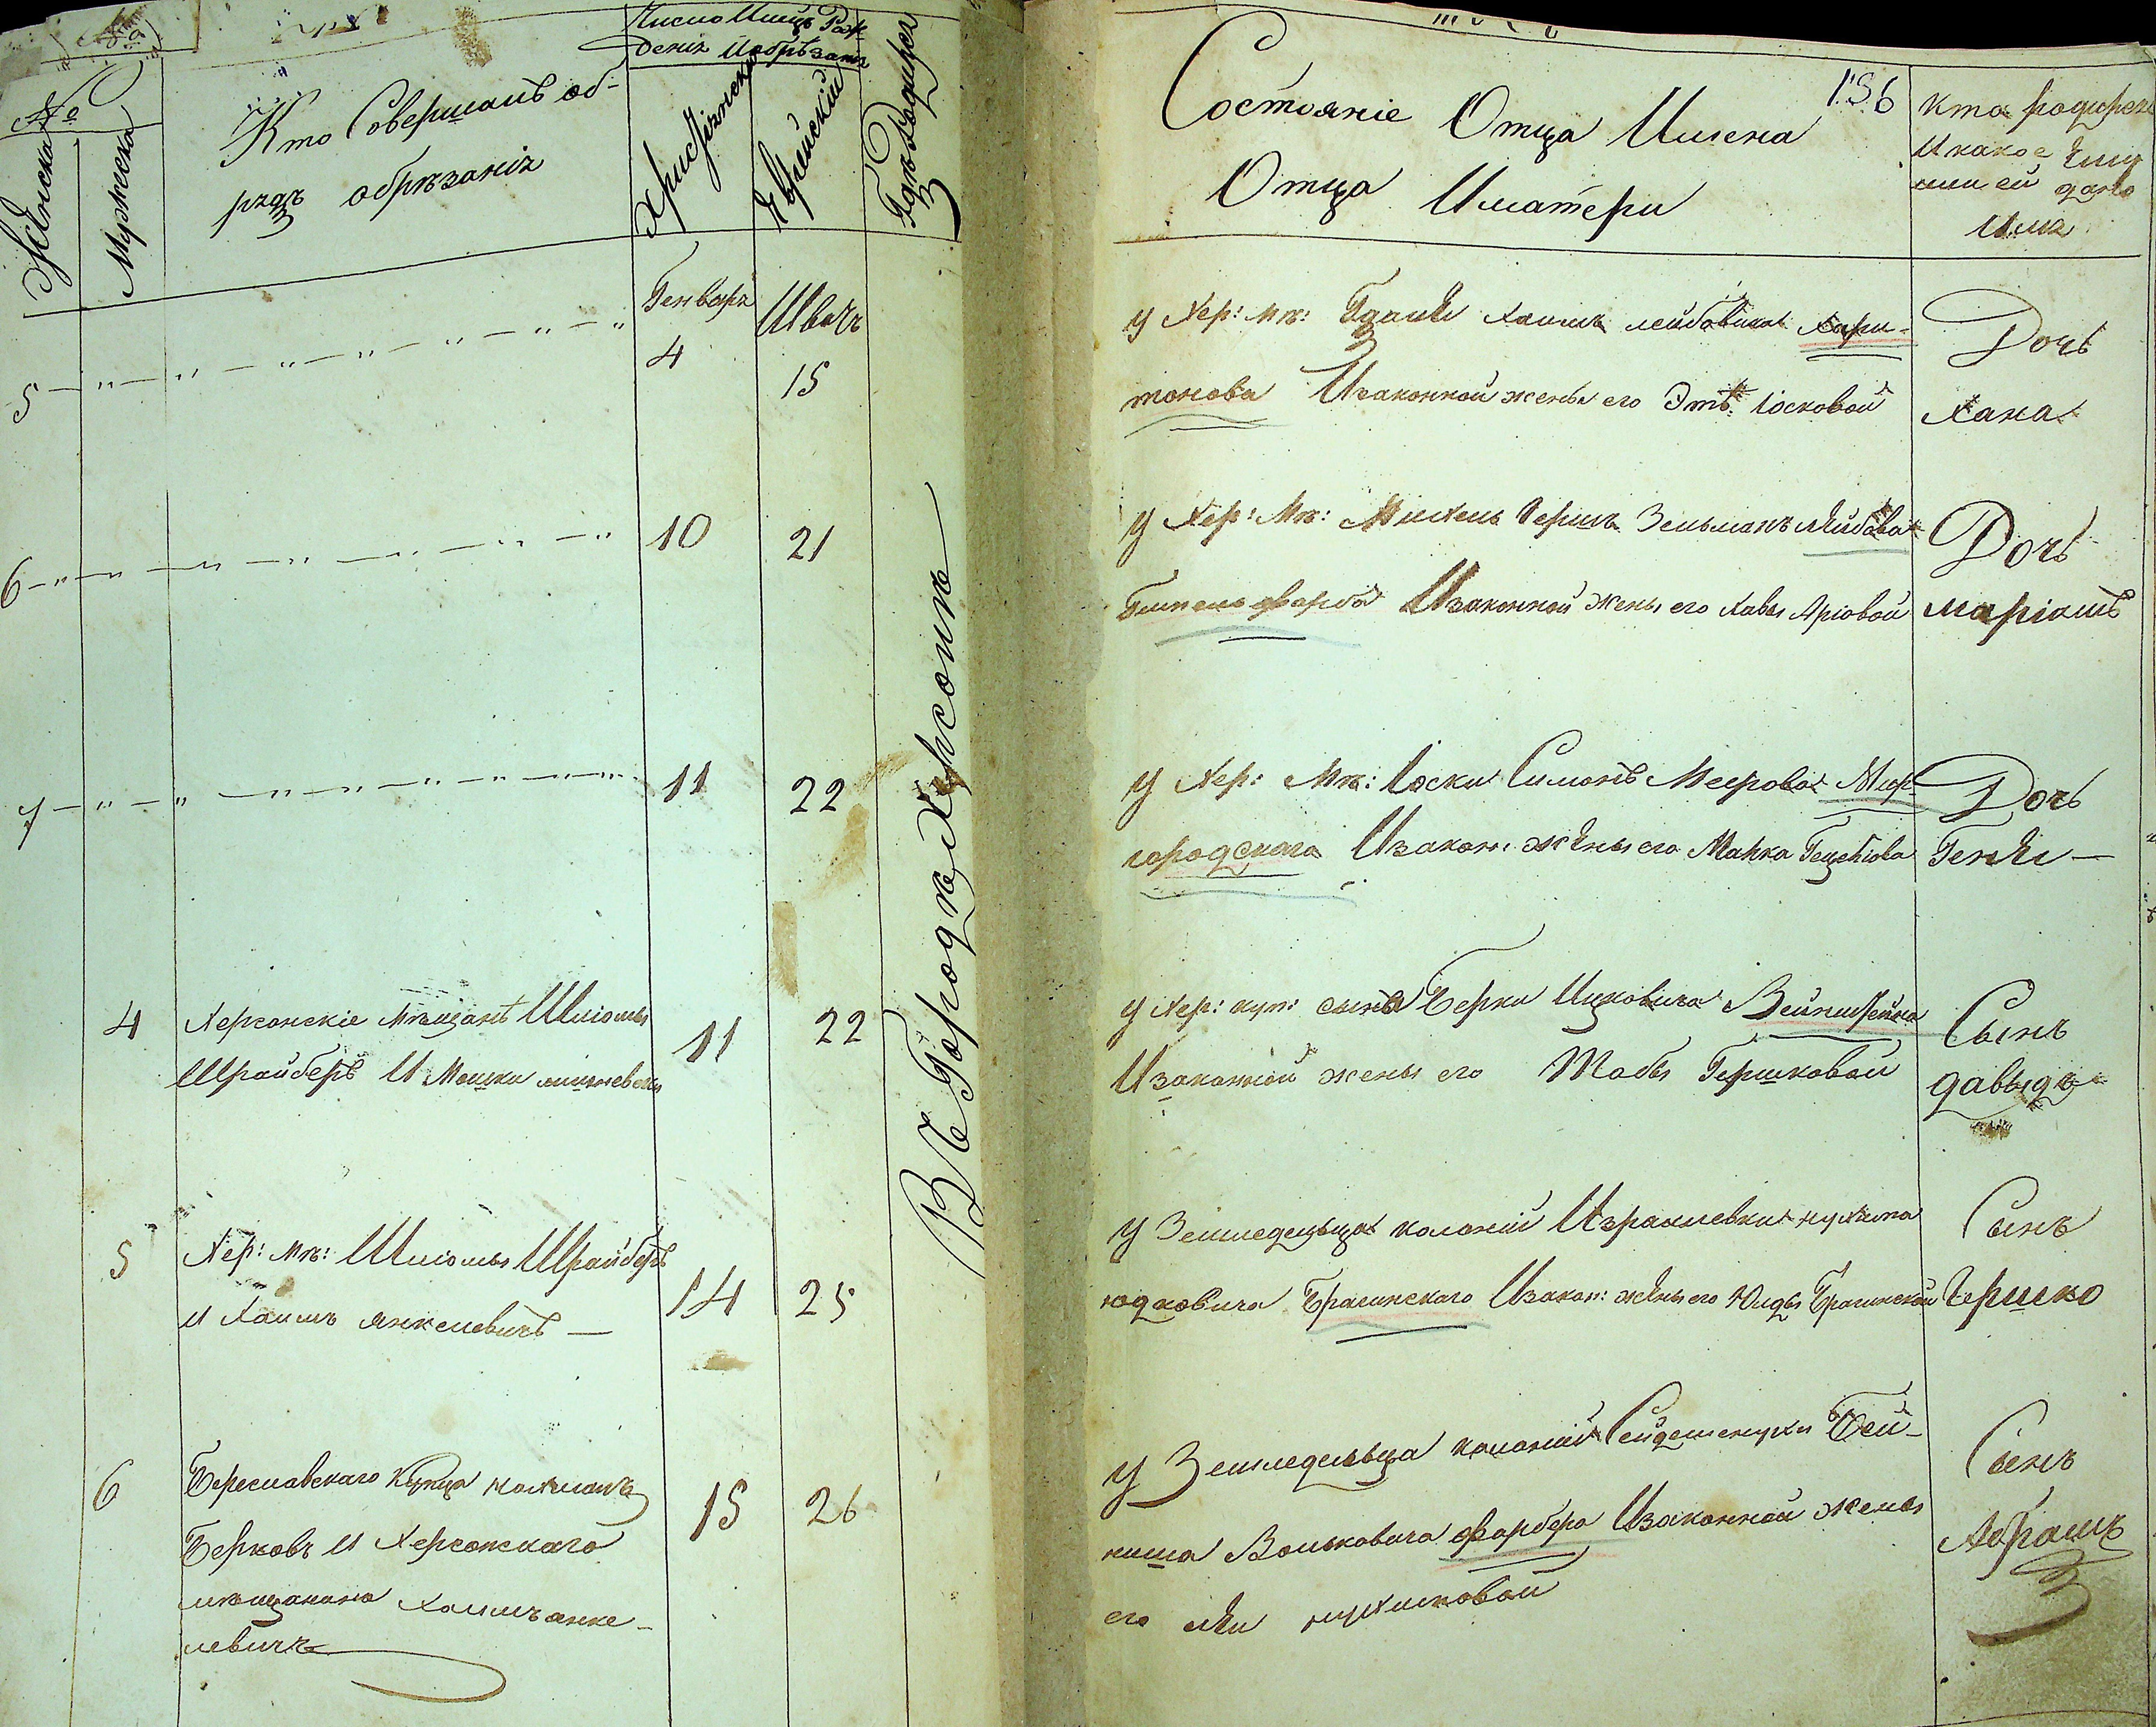 №
Женска
Мужеска
Кто Совершалъ об-
рядъ обрѣзанія
Число Имѣсяцъ Рож-
денія Иобрѣзанія
Христіянский
Еврейский
Гдѣ Родился
Состояніе Отца Имена
Отца Иматери
156
Кто родился
Икакое ему
или ей дано
Имя
5 — " — " — " — " — " — "
Генваря
4
Шватъ
15
У Хер: мѣ: Хаимъ Лейбовича Хари-
тонова Изаконной жены его Этѣ Іосковой
Дочь
Хана
6 — " — " — " — " — " — "
10
21
У Хер: Мѣ: Михель Гершъ Зельманъ Лейбова
Изаконной жены его Хавы Аріовой
Дочь
Маріамъ
7 — " — " — " — " — " — "
11
22
У Хер: Мѣ: Іоски Симонъ Меерова Мир-
городскаго Изакон: жены его Манка
Дочь
Геня —
В Городѣ Херсонѣ
4
Херсонскіе мѣщанѣ Шліомы
Шрайберъ И Мошки
11
22
У Хер: куп: сына Берки Ицковича Вейнштейна
Изаконной жены его Товбы Гершковой
Сынъ
Давыдъ
5
Хер: мѣ: Шліомы Шрайберъ
и Хаимъ Янкелевичъ —
14
25
У Земледельца колоніи Израилевки Нухима
Юдковича Брагинскаго Изакон: жены его Юиды Брагинской
Сынъ
Гершко
6
Береславскаго Купца Нахманъ
Берковъ И Херсонскаго
мѣщанина Хаимъ Янке-
левичъ
15
26
У Земледельца колоніи Сейдеменухи Бей-
ниша Вольковича Фарбера Изаконной жены
его Леи Нухимовой
Сынъ
Абрамъ